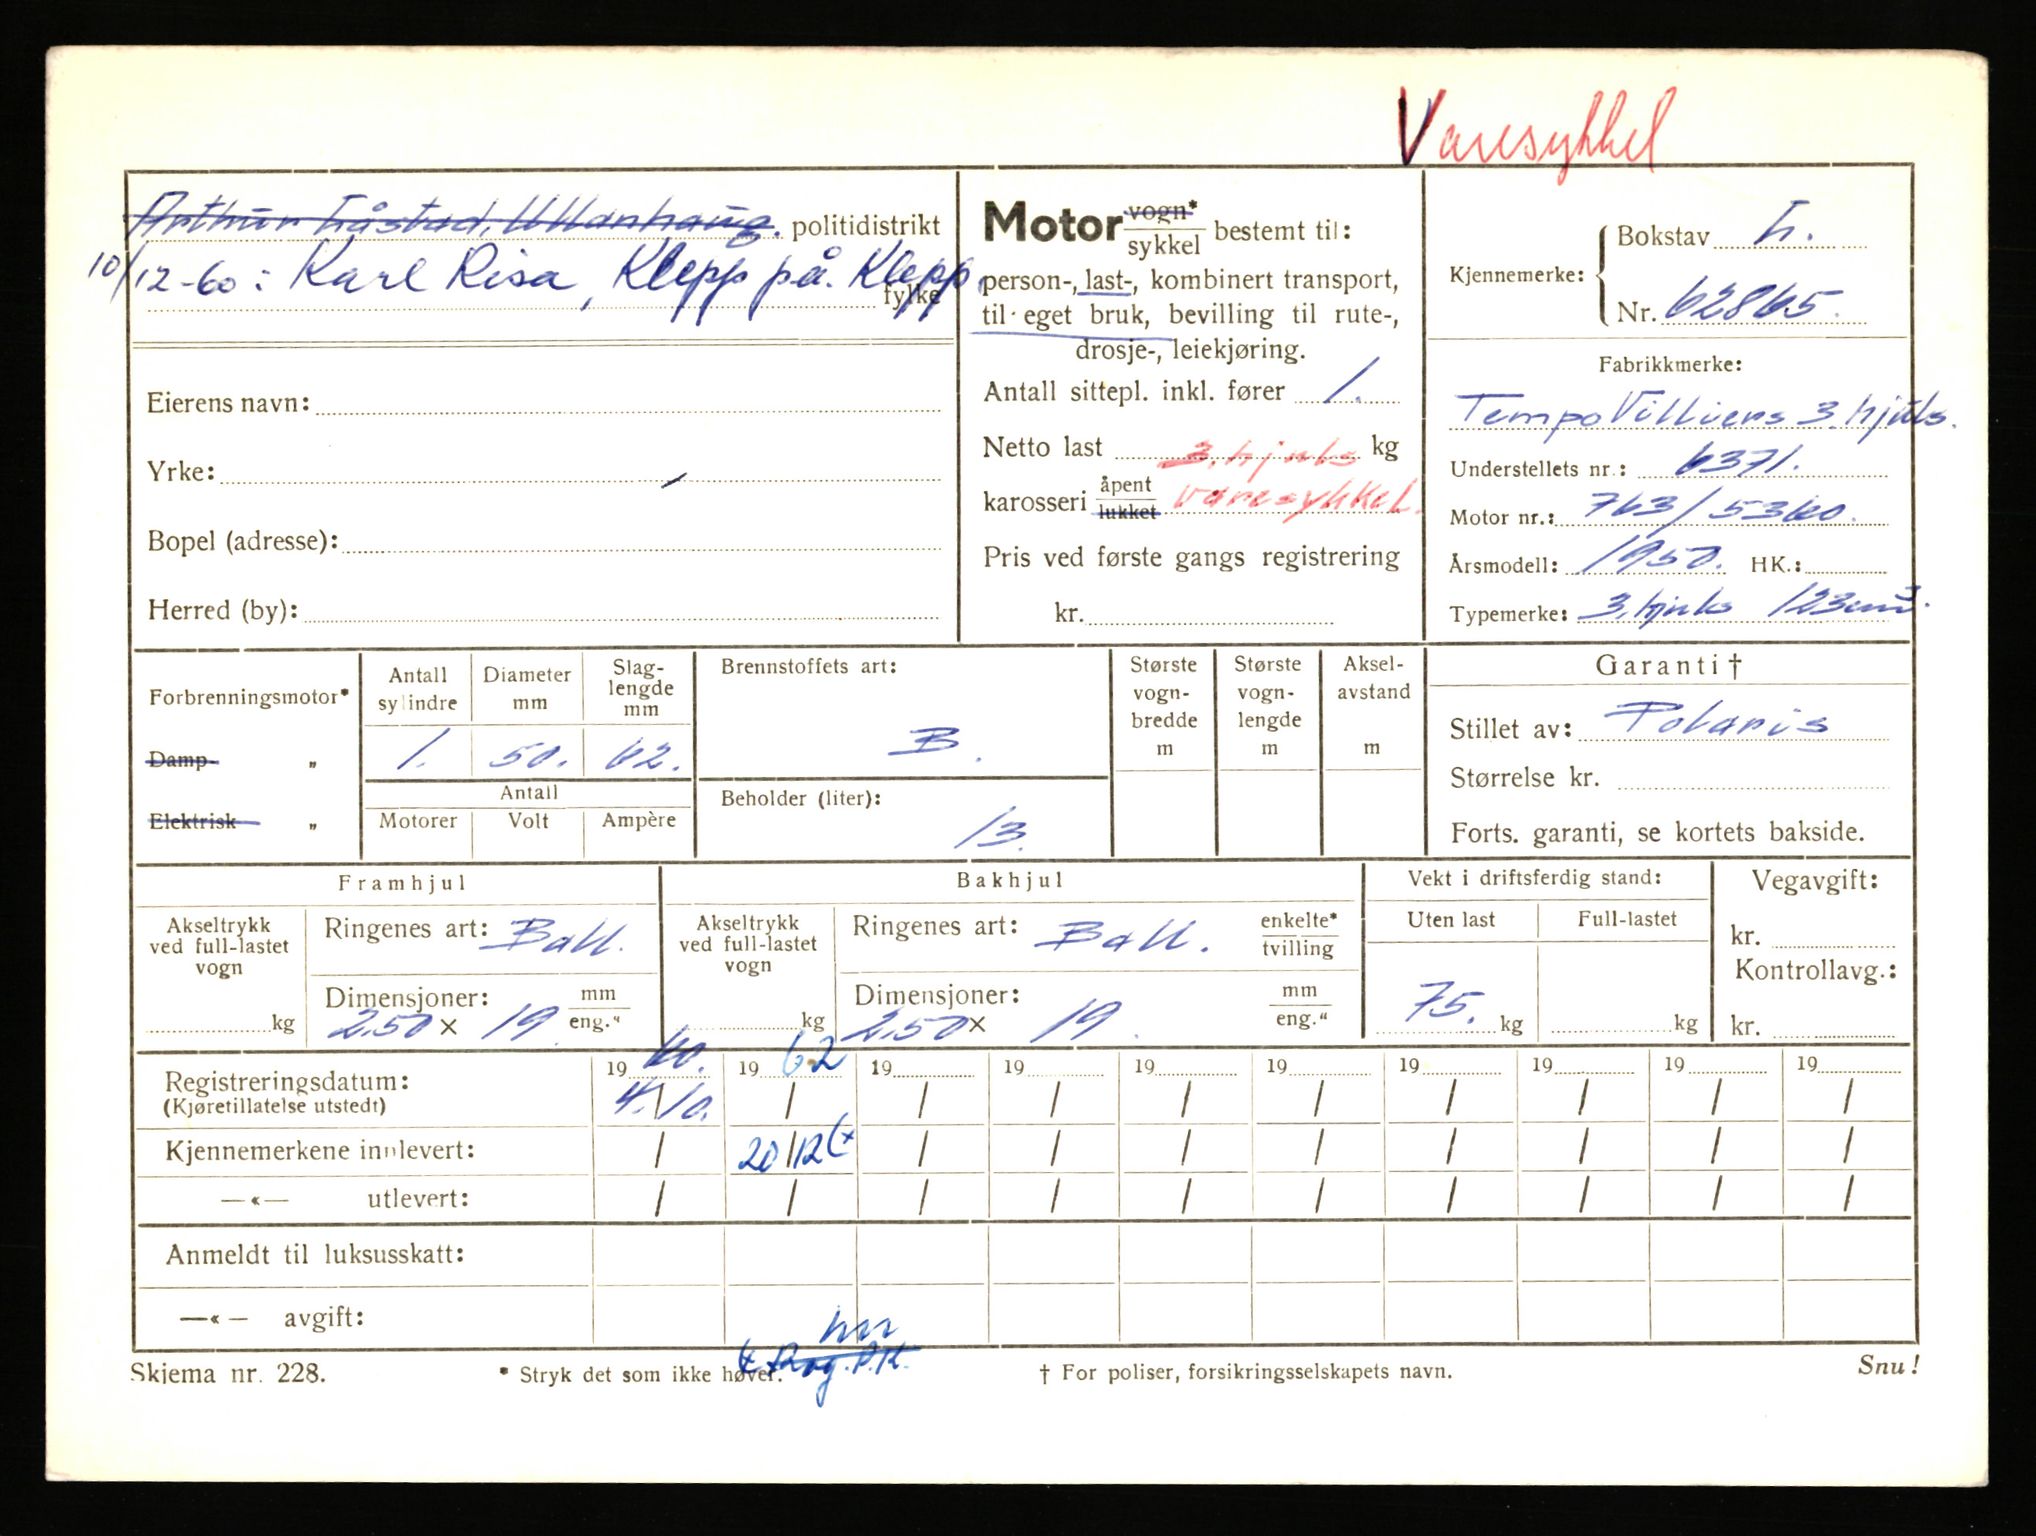 Varesykkel
Arthur Tråstad, Ullanhaug. politidistrikt
10/12-60: Karl Risa, Klepp på. Klepp
fylke
Eierens navn:
Yrke:
Bopel (adresse):
Herred (by):
Motor vogn* / sykkel bestemt til:
person-, last-, kombinert transport,
til eget bruk, bevilling til rute-,
drosje-, leiekjøring.
Antall sittepl. inkl. fører 1.
Netto last 3. hjuls kg
karosseri åpent / lukket varesykkel.
Pris ved første gangs registrering
kr.
Kjennemerke: Bokstav L.
Nr. 62865.
Fabrikkmerke:
Tempo Villiers 3. hjuls.
Understellets nr.: 6371.
Motor nr.: 763/5360.
Årsmodell: 1950. HK.:
Typemerke: 3. hjuls 123cm³.
Forbrenningsmotor*
Damp „
Elektrisk „
Antall sylindre Diameter mm Slag-lengde mm
1. 50. 62.
Antall
Motorer Volt Ampère
Brennstoffets art:
B.
Beholder (liter):
13.
Største vogn-bredde m Største vogn-lengde m Aksel-avstand m
Garanti †
Stillet av: Polaris
Størrelse kr.
Forts. garanti, se kortets bakside.
Framhjul
Akseltrykk ved full-lastet vogn
kg
Ringenes art: Ball.
Dimensjoner: mm / eng."
2.50 × 19.
Bakhjul
Akseltrykk ved full-lastet vogn
kg
Ringenes art: Ball. enkelte* / tvilling
Dimensjoner: mm / eng."
2.50 × 19.
Vekt i driftsferdig stand:
Uten last Full-lastet
75. kg kg
Vegavgift:
kr.
Kontrollavg.:
kr.
Registreringsdatum: 19 60. 19 62 19 19 19 19 19 19 19 19
(Kjøretillatelse utstedt) 4./10. / / / / / / / / /
Kjennemerkene innlevert: / 20/12 (x / / / / / / / /
—«— utlevert: / / / / / / / / / /
Anmeldt til luksusskatt:
—«— avgift:
(x Rog. P.K.
Skjema nr. 228. * Stryk det som ikke høver. † For poliser, forsikringsselskapets navn. Snu!